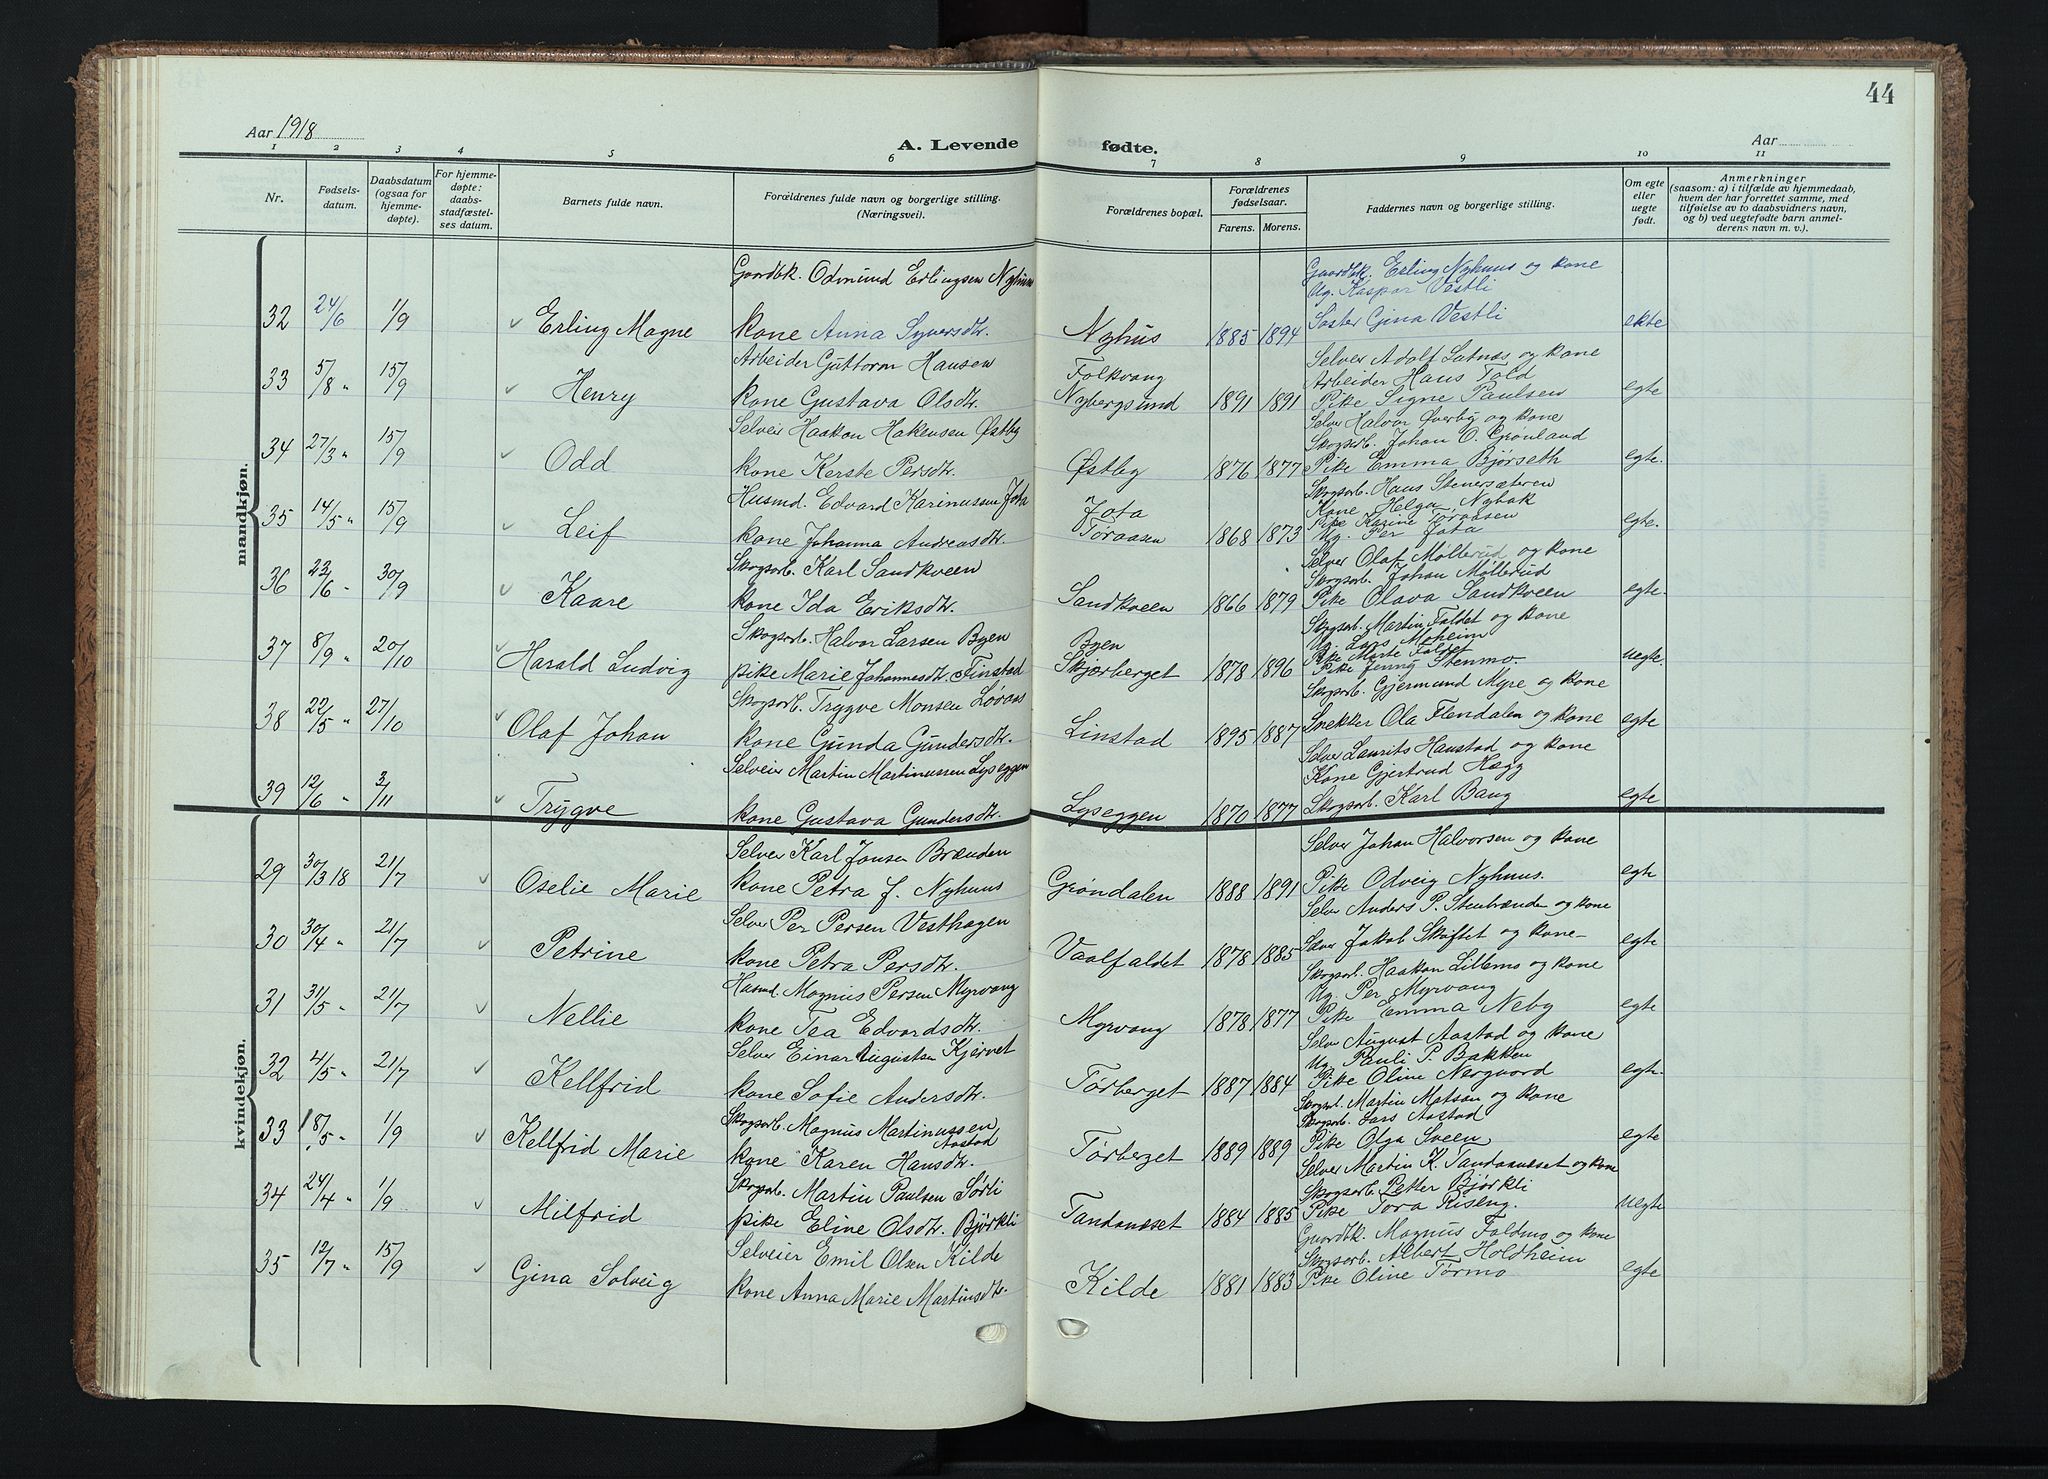 44
Aar 1918
A. Levende fødte.
Aar
1 2 3 4 5 6 7 8 9 10 11
Nr.
Fødselsdatum.
Daabsdatum (ogsaa for hjemmedøpte).
For hjemmedøpte: daabsstadfæstelses datum.
Barnets fulde navn.
Forældrenes fulde navn og borgerlige stilling. (Næringsvei).
Forældrenes bopæl.
Forældrenes fødselsaar.
Farens. Morens.
Faddernes navn og borgerlige stilling.
Om egte eller uegte født.
Anmerkninger
(saasom: a) i tilfælde av hjemmedaab, hvem der har forrettet samme, med tilføielse av to daabsvidners navn, og b) ved uegtefødte barn anmelderens navn m. v.).
mandkjøn.
Gardbk. Odmund Erlingsen Nyhuus
Gaardbk. Erling Nyhuus og kone
Ug. Kaspar Vestli
32 24/6 1/9 Erling Magne kone Anna Syversdtr. Nyhus 1885 1894 Søster Gina Vestli ekte
Arbeider Guttorm Hansen Folkvang
Selver Adolf Lutnæs og kone
Arbeider Hans Told
33 5/8 " 15/9 Henry kone Gustava Olsdtr. Nybergsund 1891 1891 Pike Signe Paulsen egte
Selveier Haakon Hakensen Østby
Selver Halvor Øverby og kone
Skogsarb. Johan O. Grønland
34 27/3 " 15/9 Odd kone Kerste Persdtr. Østby 1876 1877 Pike Emma Bjørseth egte.
Husmd. Edvard Karinussen Jota Jota
Skogsarb. Hans Stenersæteren
Kone Helga Nybak
Pike Karine Tøraasen
35 14/5 " 15/9 Leif kone Johanna Andreasdtr. Tøraasen 1868 1873 Ug. Per Jota egte.
Skogsarb. Karl Sandkveen
Selver Olaf Møllerud og kone
Skogsarb. Johan Møllerud
36 23/6 - 30/9 Kaare kone Ida Eriksdtr. Sandkveen 1866 1879 Pike Olava Sandkveen egte.
Skogsarb. Halvor Larsen Byen Byen
Skogsarb. Martin Faldet og kone
Ug. Lars Moheim
Pike Marte Faldet
37 8/9 " 20/10 Harald Ludvig pike Marie Johannesdtr. Finstad Skjørberget 1878 1896 Pike Jenny Stenmo. uegte.
Skogsarb. Trygve Monsen Løvaas
Skogsarb. Gjermund Myre og kone
38 22/5 " 27/10 Olaf Johan kone Gunda Gundersdtr. Linstad 1895 1887 Snekker Ola Flendalen og kone egte
Selveier Martin Martinussen Lyseggen
Selver Laurits Haustad og kone
Kone Gjertrud Hægg
39 12/6 " 3/11 Trygve kone Gustava Gundersdtr. Lyseggen 1870 1877 Skogsarb. Karl Baug egte
kvindekjøn.
Selver Karl Jonsen Brænden
Selver Johan Halvorsen og kone
29 30/3 18 21/7 Oselie Marie kone Petra f. Nyhuus Grøndalen 1888 1891 Pike Odveig Nyhuus. egte
Selver Per Persen Vesthagen
Selver Anders P. Stenbrænden og kone
30 30/4 " 21/7 Petrine kone Petra Persdtr. Vaalfaldet 1878 1885 Selver Jakob Skiftet og kone- egte
Husmd. Magnus Persen Myrvang
Skogsarb. Haakon Lillemo og kone
Ug. Per Myrvang
31 31/5 " 21/7 Nellie kone Tea Edvardsdtr. Myrvang 1878 1877 Pike Emma Neby egte
Selver Einar Augustsen Kjernet
Selver August Aastad og kone
Ug. Pauli P. Bakken
32 4/5 " 21/7 Kellfrid kone Sofie Andersdtr. Tørberget 1887 1884 Pike Oline Nergaard egte.
Skogsarb. Magnus Martinussen Aastad
Skogsarb. Martin Matson og kone
Skogsarb. Lars Aastad
33 18/5 " 1/9 Kellfrid Marie kone Karen Hansdtr. Tørberget 1889 1889 Pike Olga Sveen egte
Skogsarb. Martin Paulsen Sørli
Selver Martin K. Tandanæset og kone
Skogsarb. Petter Bjørkli
34 24/4 " 1/9 Milfrid pike Eline Olsdtr. Bjørkli Tandanæset 1884 1885 Pike Tora Riseng. Uegte
Selveier Emil Olsen Kilde
Gaardbk. Magnus Faldmo og kone
Skogsarb. Albert Holdheim
35 12/7 " 15/9 Gina Solveig kone Anna Marie Martinsdtr. Kilde 1881 1883 Pike Oline Tørmo egte